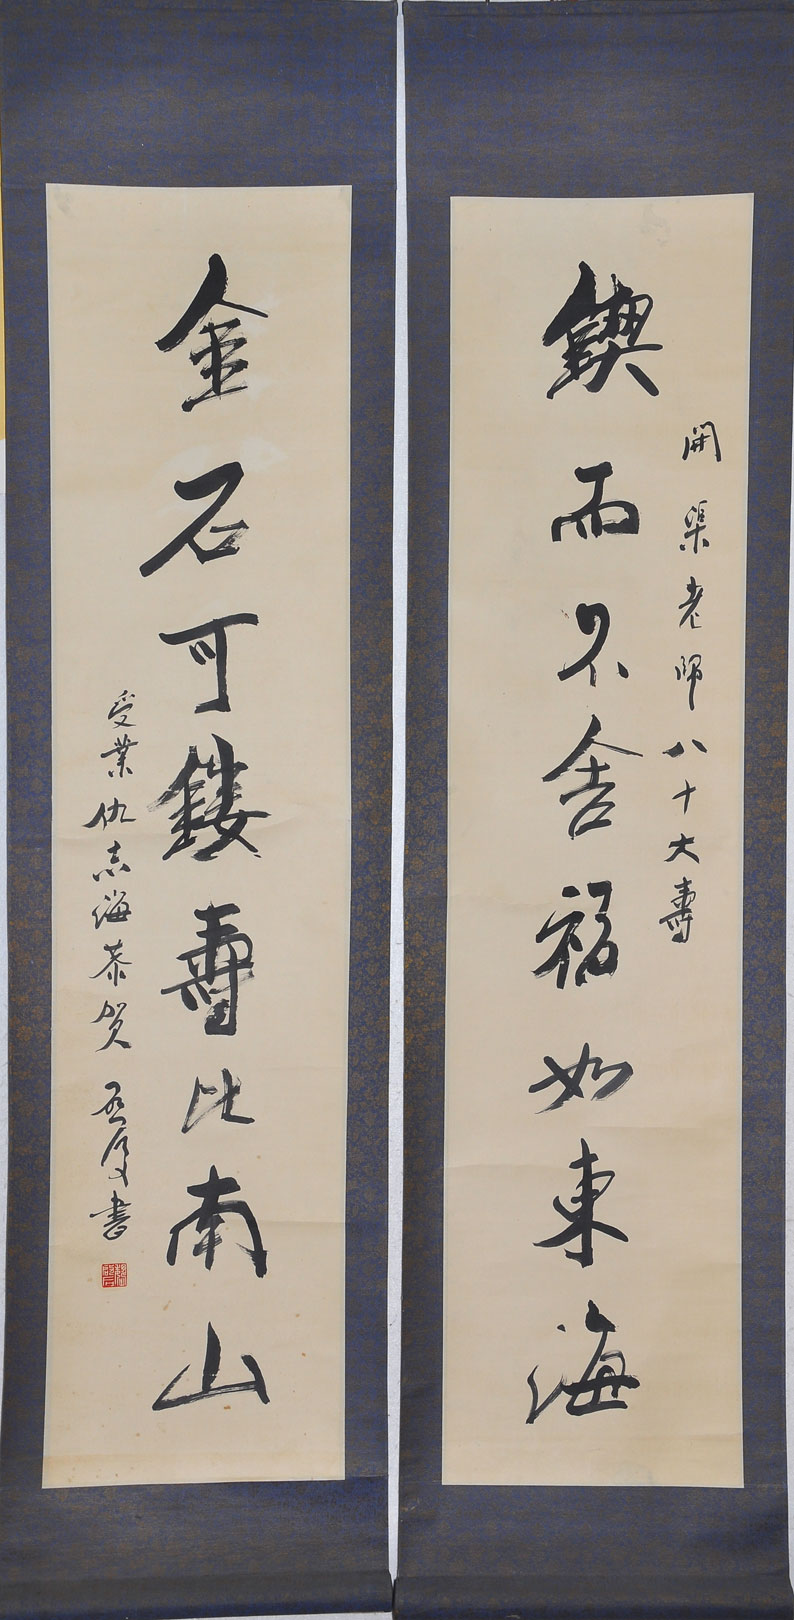 鍥而不舍福如東海
開渠老師八十大壽
金石可鏤壽比南山
受業仇志海恭贺
书